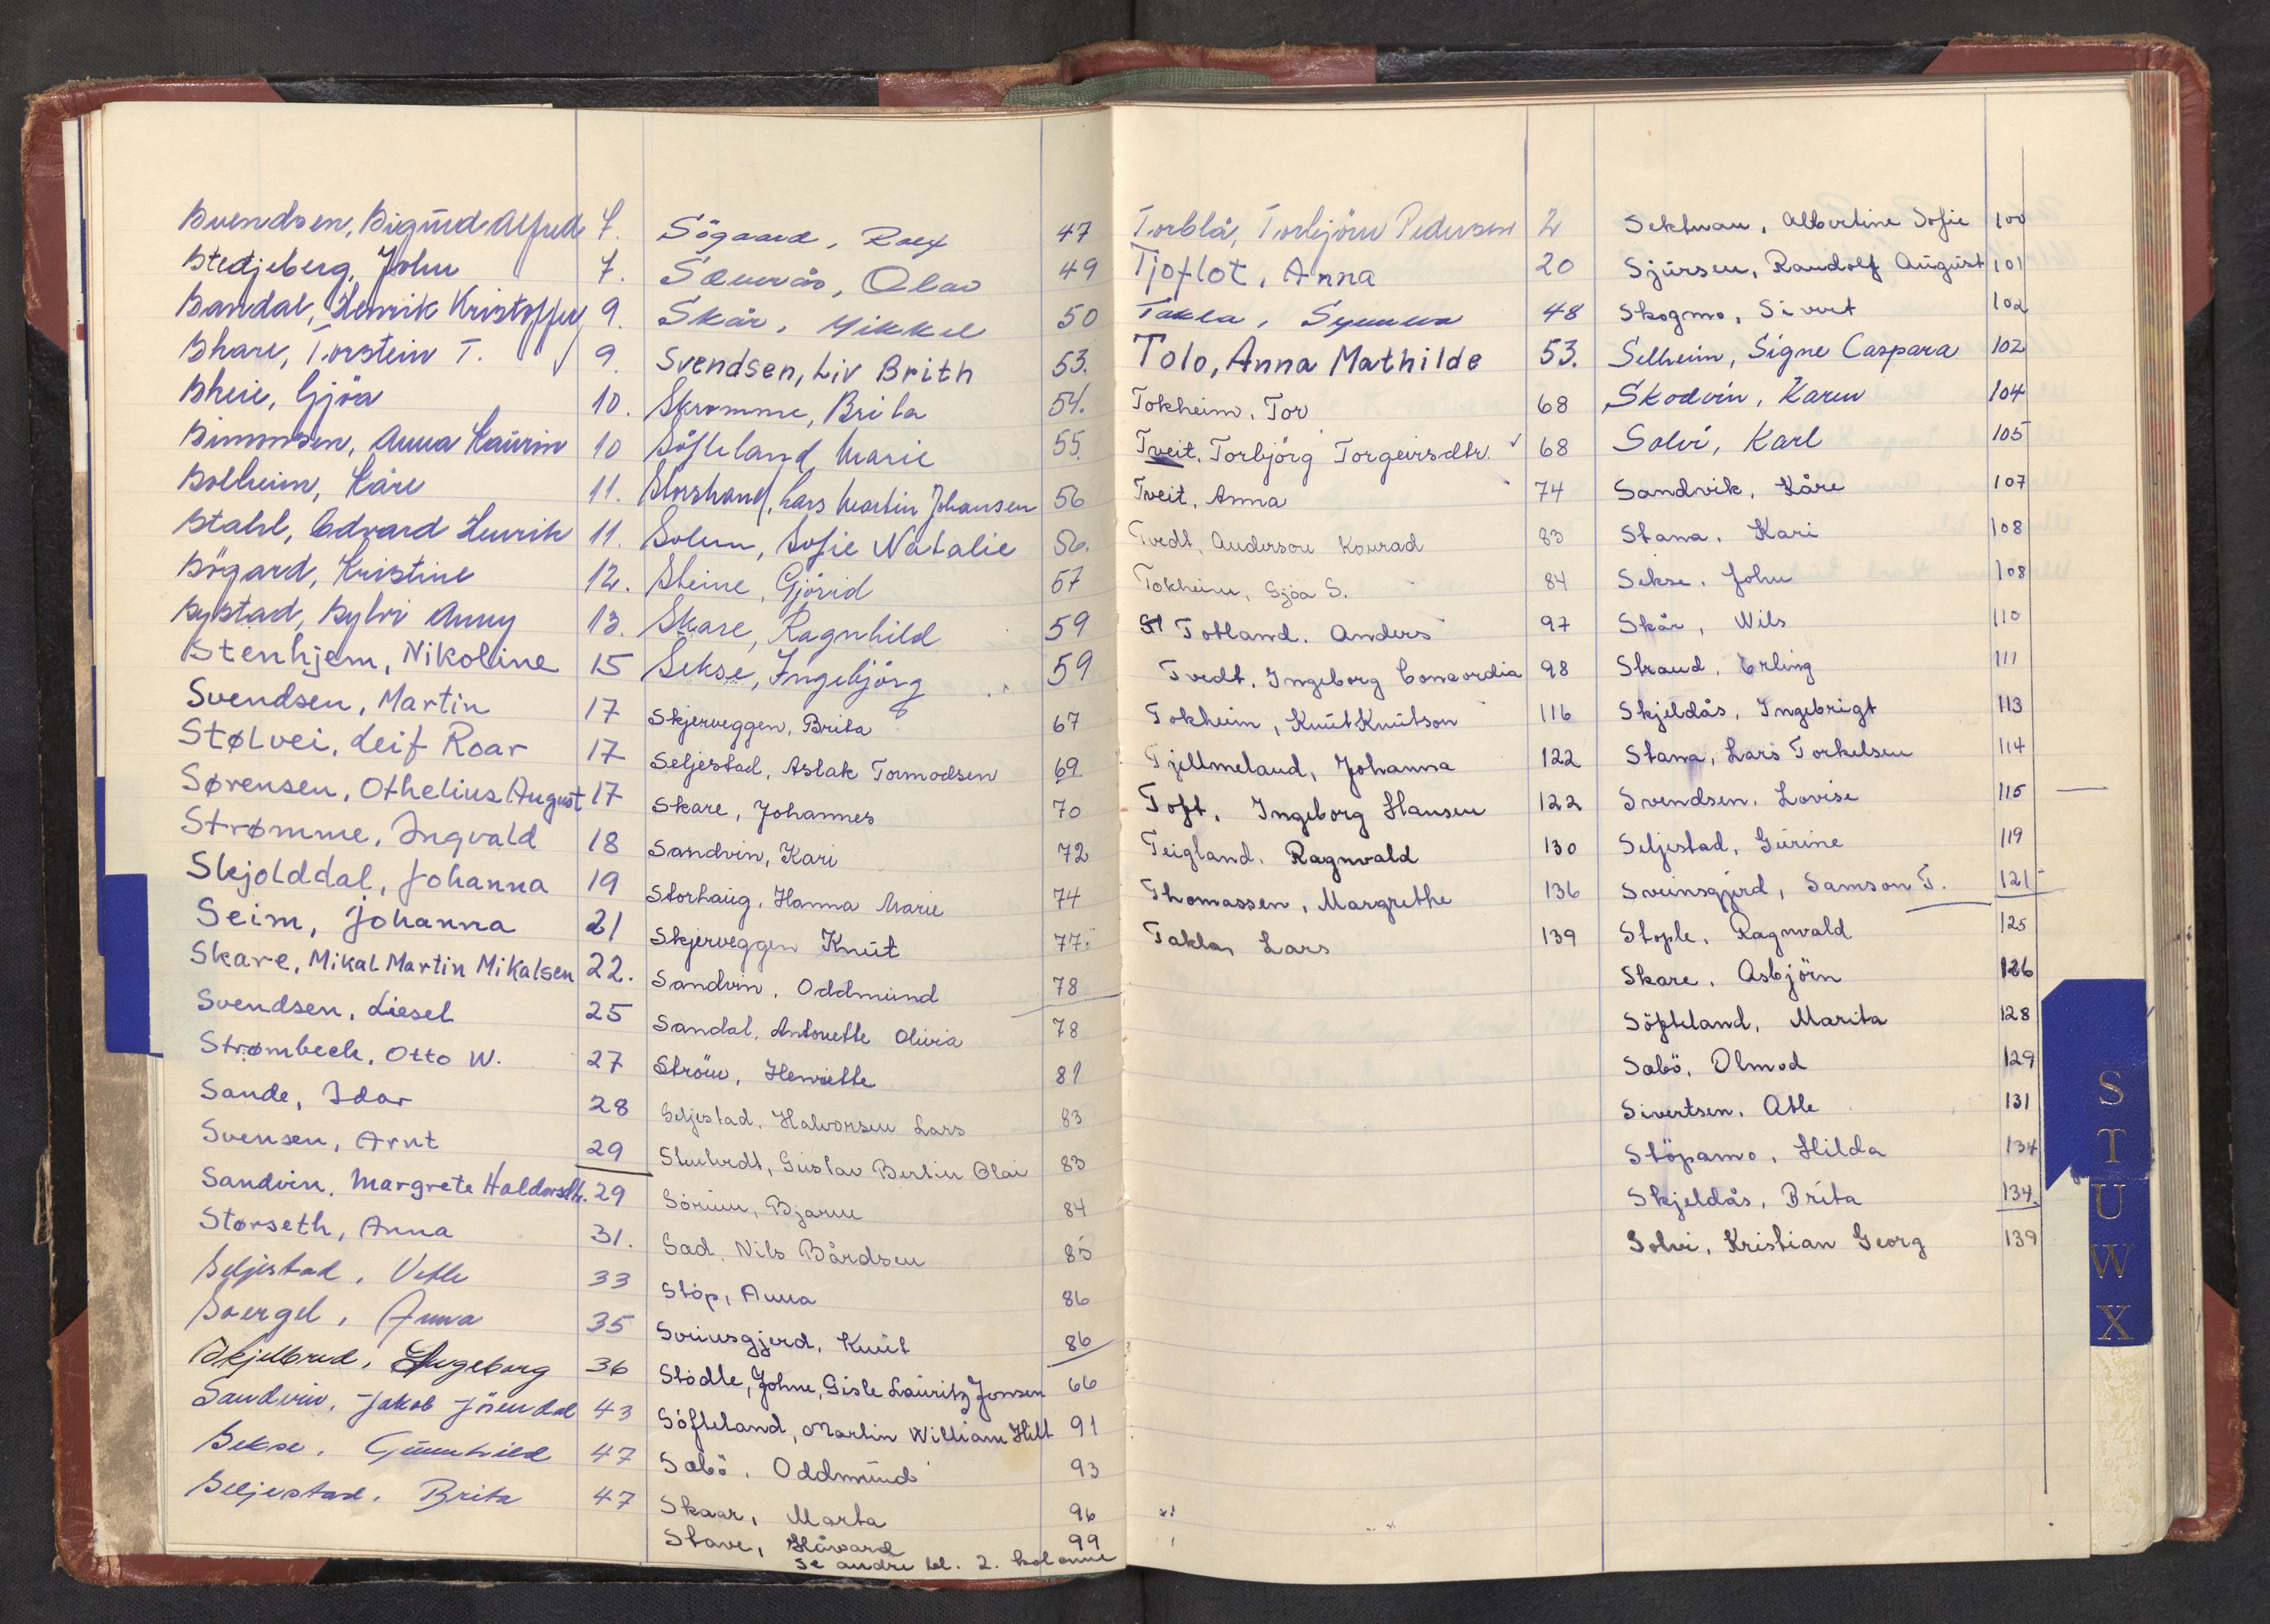 Svendsen, Sigurd Alfred 7.
Stedjeberg, John 7.
Sandal, Henrik Kristoffer 9.
Skare, Torstein T. 9.
Skeie, Gjöa 10.
Simonsen, Anna Laurin 10
Solheim, Kåre 11.
Stahl, Edvard Henrik 11.
Sögard, Kristine 12.
Systad, Sylvi Anny 13.
Stenhjem, Nikoline 15
Svendsen, Martin 17
Stølvei, Leif Roar 17
Sørensen, Othelius August 17
Strømme, Ingvald 18
Skjolddal, Johanna 19
Seim, Johanna 21
Skare, Mikal Martin Mikalsen 22.
Svendsen, Liesel 25
Strømbeck, Otto W. 27
Sande, Idar 28
Svensen, Arnt 29
Sandvin, Margrete Haldorsdtr. 29
Storseth, Anna 31.
Seljestad, Vetle 33
Soergel, Anna 35
Skjelbred, Ingeborg 36
Sandvin, Jakob Jörendal 43
Sekse, Gunnhild 47
Seljestad, Brita 47
Sögaard, Rolf 47
Olav 49
Skår, Mikkel 50
Svendsen, Liv Brith 53.
Skromme, Brita 54.
Söfteland, Marie 55.
Storshand, Lars Martin Johansen 56
Solem, Sofie Natalie 56.
Steine, Gjörid 57
Skare, Ragnhild 59
Sekse, Ingebjörg 59
Skjerveggen, Brita 67
Seljestad, Aslak Tormodsen 69
Skare, Johannes 70
Sandvin, Kari 72
Storhaug, Hanna Marie 74
Skjerveggen Knut 77.
Sandvin, Oddmund 78
Sandal, Antonette Olivia 78
Ström, Henriette 81
Seljestad, Halvorsen Lars 83
Gustav Bertin Olai 83
Sörum, Bjarne 84
Sad, Nils Bårdsen 85
Stöp, Anna 86
Sveinsgjerd, Knut 86
Stödle, Johne, Gisle Lauritz Jonsen 66
Söfteland, Martin William Hilt 91
Sæbö, Oddmund 93
Skaar, Marta 96
Stave, Håvard 99
se andre bl. 2. kolonne
Torblå, Torbjörn Pedersen 2
Tjoflot, Anna 20
Takla, Synneva 48
Tolo, Anna Mathilde 53.
Tokheim, Tor 68
Tveit, Torbjörg Torgeirsdtr. 68
Tveit, Anna 74
Tvedt, Anderson Konrad 83
Tokheim, Gjöa S. 84
Totland, Anders 97
Tvedt, Ingeborg Concordia 98
Tokheim, Knut Knutson 116
Tjeltmeland, Johanna 122
Toft, Ingeborg Hansen 122
Teigland, Ragnvald 130
Thomassen, Margrethe 136
Takla, Lars 139
Albertine Sofie 100
Sjursen, Randolf August 101
Skogmo, Sivert 102
Selheim, Signe Caspara 102
Skodvin, Karen 104
Solvi, Karl 105
Sandvik, Kåre 107
Stana, Kari 108
Sekse, John 108
Skår, Nils 110
Strand, Erling 111
Skjeldås, Ingebrigt 113
Stana, Lars Torkelsen 114
Svendsen, Lovise 115
Seljestad, Gurine 119
Sveinsgjerd, Samson T. 121
Stople, Ragnvald 125
Skare, Asbjörn 126
Söfteland, Marita 128
Sæbö, Olmod 129
Sivertsen, Atle 131
Stöpamo, Hilda 134
Skjeldås, Brita 134
Solvi, Kristian Georg 139
S
T
U
W
X